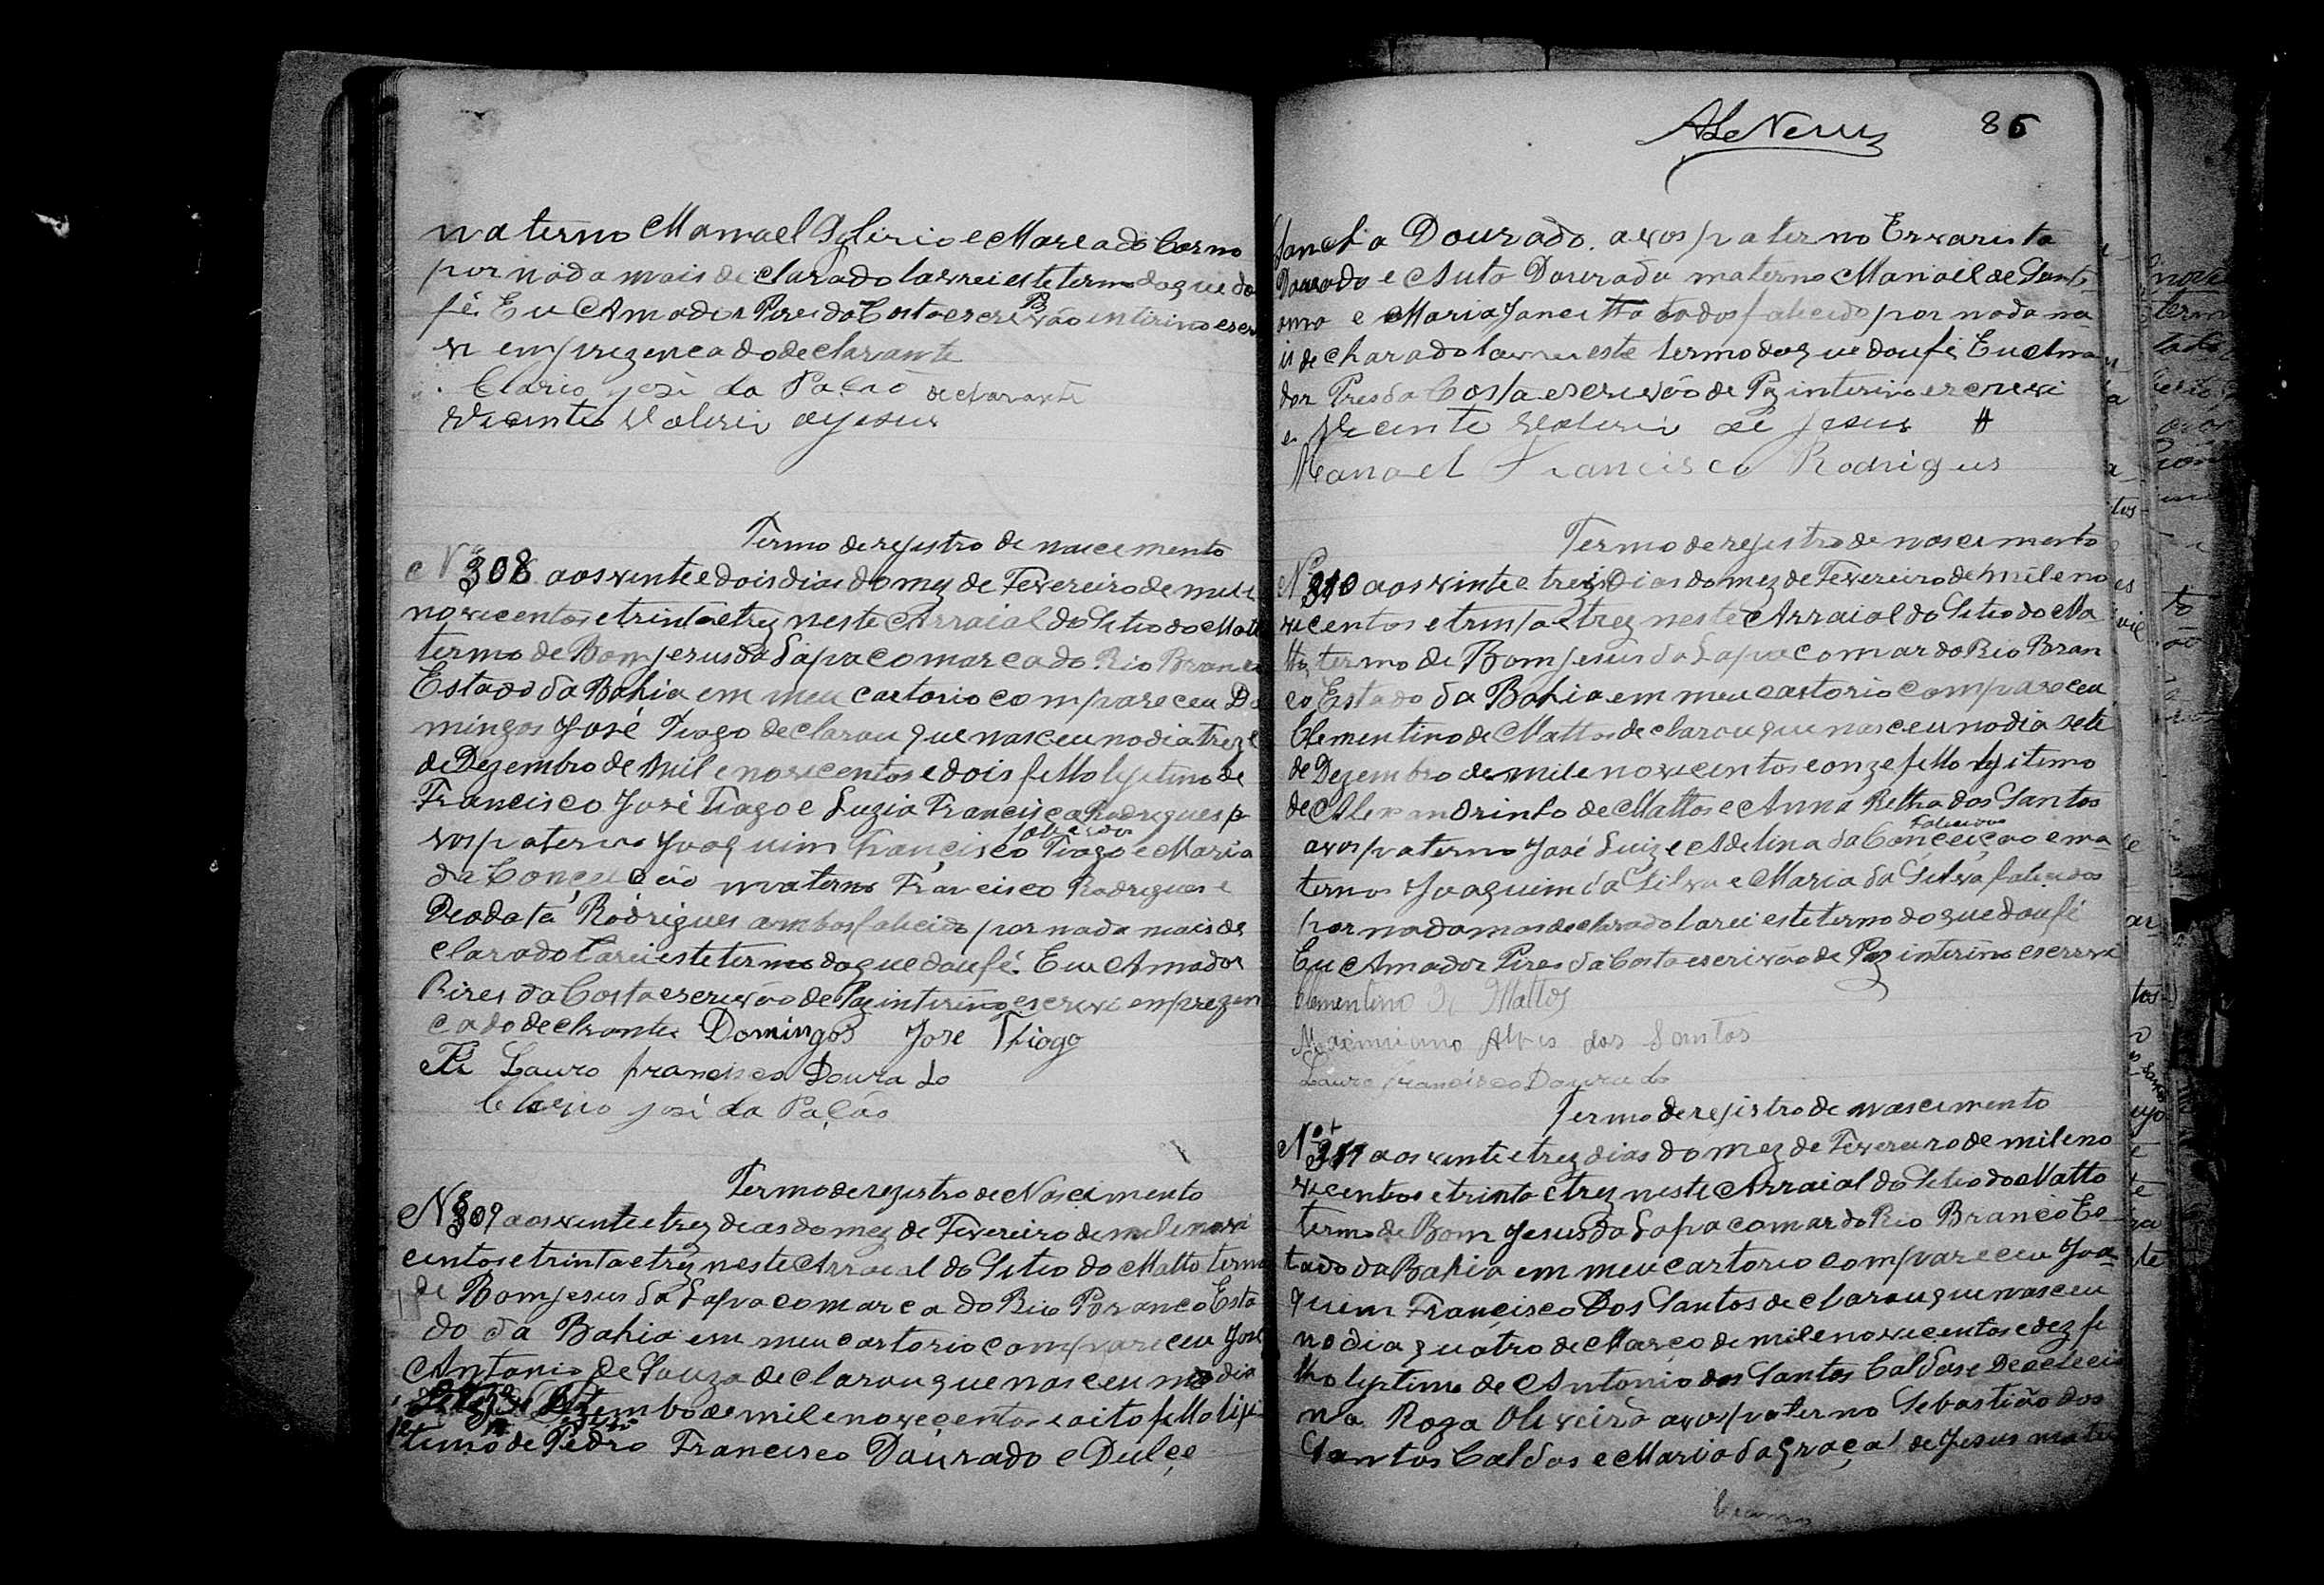 materno Manoel Glirio e Maria do Carmo
por nada mais declarado lavrei este termo do que dou
fé. Eu Amador Pires da Costa escrivão Pz intirino escre
vi em prezenca do declarante
Clario josé da Pação declarante
Vicente Valerio de jesus
Termo de registro de nascemento
Nº 308 aos vinte e dois dias do mez de Fevereiro de mil e
novecentos e trinta e trez neste Arraial do Sitio do Matto
termo de Bom jesus da Lapa comarca do Rio Branco
Estado da Bahia em meu cartorio compareceu Do
mingos José Tiago declarou que nasceu no dia treze
de Dezembro de mil e novecentos e dois filho legitimo de
Francisco José Tiago e Luzia Francisca Rodrigues
vos paterno Joaquim Francisco Tiago e Maria
falecidos
da Conceicão materno Francisco Rodrigues e
Deodata Rodrigues ambos falicido por nada mais de
clarado larei este termo do que dou fé. Eu Amador
Pires da Costa escrivão de Paz intirino escrevi em prezen
ca do declrante Domingos Jose Thiago
Lauro francisco Dourado
Clario josé da Pação
Termo de registro de Nascimento
Nº 309 aos vinte e trez dias do mez de Fevereiro de mil e novi
centos e trinta e trez neste Arraial do Sitio do Matto termo
de Bom jesus da Lapa comarca do Rio Branco Esta
do da Bahia em meu cartorio compareceu José
Antonio de Souza declarou que nasceu no dia
Setembo de mil e novecentos e oito filho ligi
timo de Pedro Francisco Dourado e Dulçe
86
Sancha Dourado. avos paterno Evaristo
Dourado e Dourado materno Manoel de Sant
e Maria todos falicido por nada ma
is decharado lavrei este termo do que dou fé Eu Ama
dor Pires da Costa escrivão de Paz interino escrevi
Vicente Valerio de Jesus
Manoel Francisco Rodrigues
Termo de registro de nascimento
Nº 310 aos vinte e treis Dias do mez de Fevereiro de mil e no
vicentos e trinta e trez neste Arraial do Sitio do Ma
tto, termo de Bom jesus da Lapa comar do Rio Bran
co Estado da Bahia em meu cartorio compareceu
Clementino de Mattos declarou que nasceu no dia sete
de Dezembro de mil e novecentos e onze filho legitimo
de Alexandrinho de Mattos e Anna Ritha dos Santos
avos paterno José Luiz e Adelina da Conçeição e ma
Falicidos
ternos Joaquim da Silva e Maria da Silva falicidos
por nada mas declarado larei este termo do que dou fé
Eu Amador Pires da Costa escrivão de Paz interino escrevi
Clementino de Mattos
Maximiano Alves dos Santos
Lauro francisco Dourado
Termo de registro de nascimento
Nº 311 aos vinte e trez dias do mez de Fevereiro de mil e no
vicentos e trinta e trez neste Arraial do Sitio do Matto
termo de Bom Jesus da Lapa comar do Rio Branco Es
tado da Bahia em meu cartorio compareceu Joa
quim Françisco Dos Santos declarou que nasceu
no dia quatro de Março de mil e novecentos e dez fi
lho legitimo de Antonio dos Santos Caldas e
na Roza Oliveira avos paterno Sebastião dos
Santos Caldas e Maria da Graça de Jesus mater